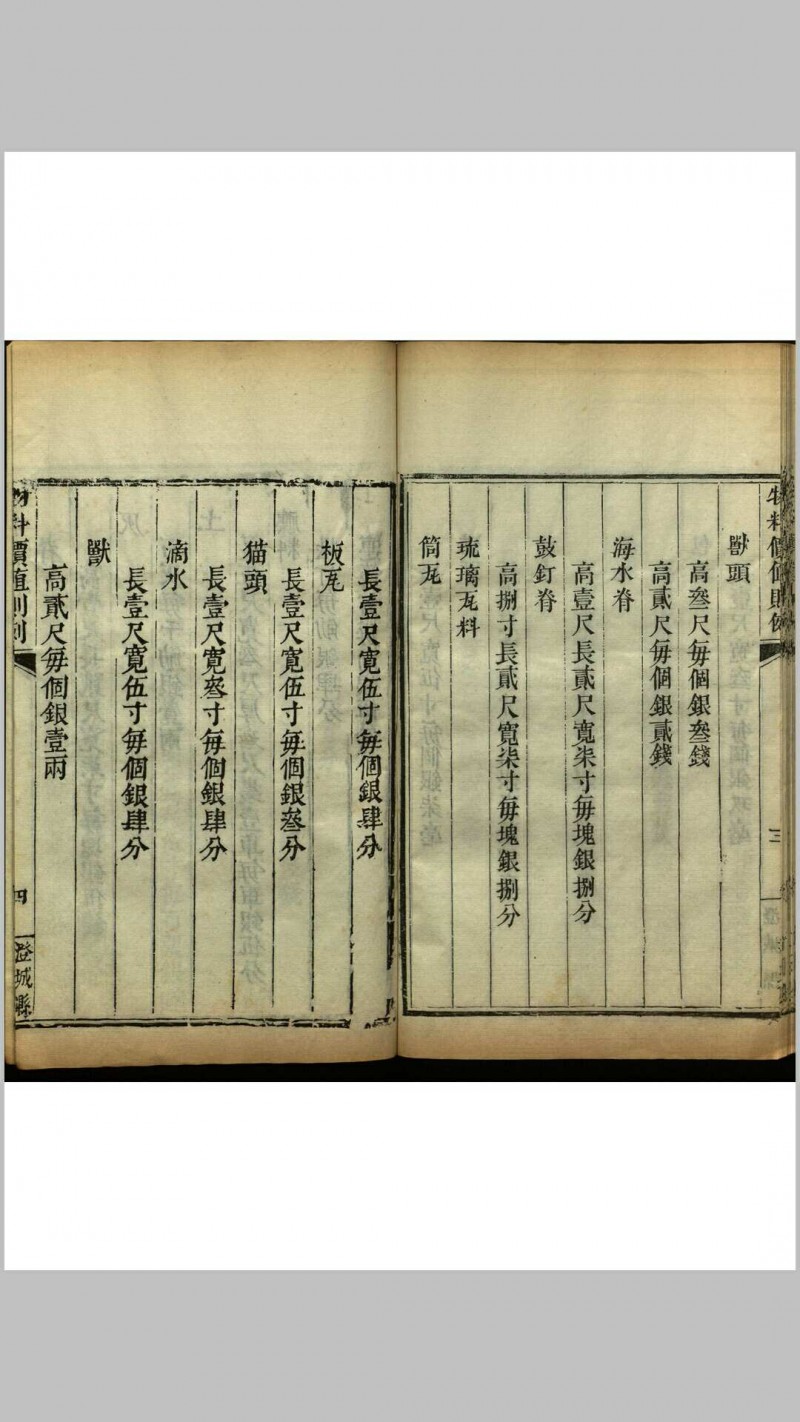 物料價值則例
三
獸頭
高叁尺每個銀叁錢
高貳尺每個銀貳錢
海水脊
高壹尺長貳尺寬柒寸每塊銀捌分
鼓釘脊
高捌寸長貳尺寬柒寸每塊銀捌分
琉璃瓦料
筒瓦
長壹尺寬伍寸每個銀肆分
板瓦
長壹尺寬伍寸每個銀叁分
猫頭
長壹尺寬叁寸每個銀肆分
滴水
長壹尺寬伍寸每個銀肆分
獸
高貳尺每個銀壹兩
物料價值則例
四
澄城縣